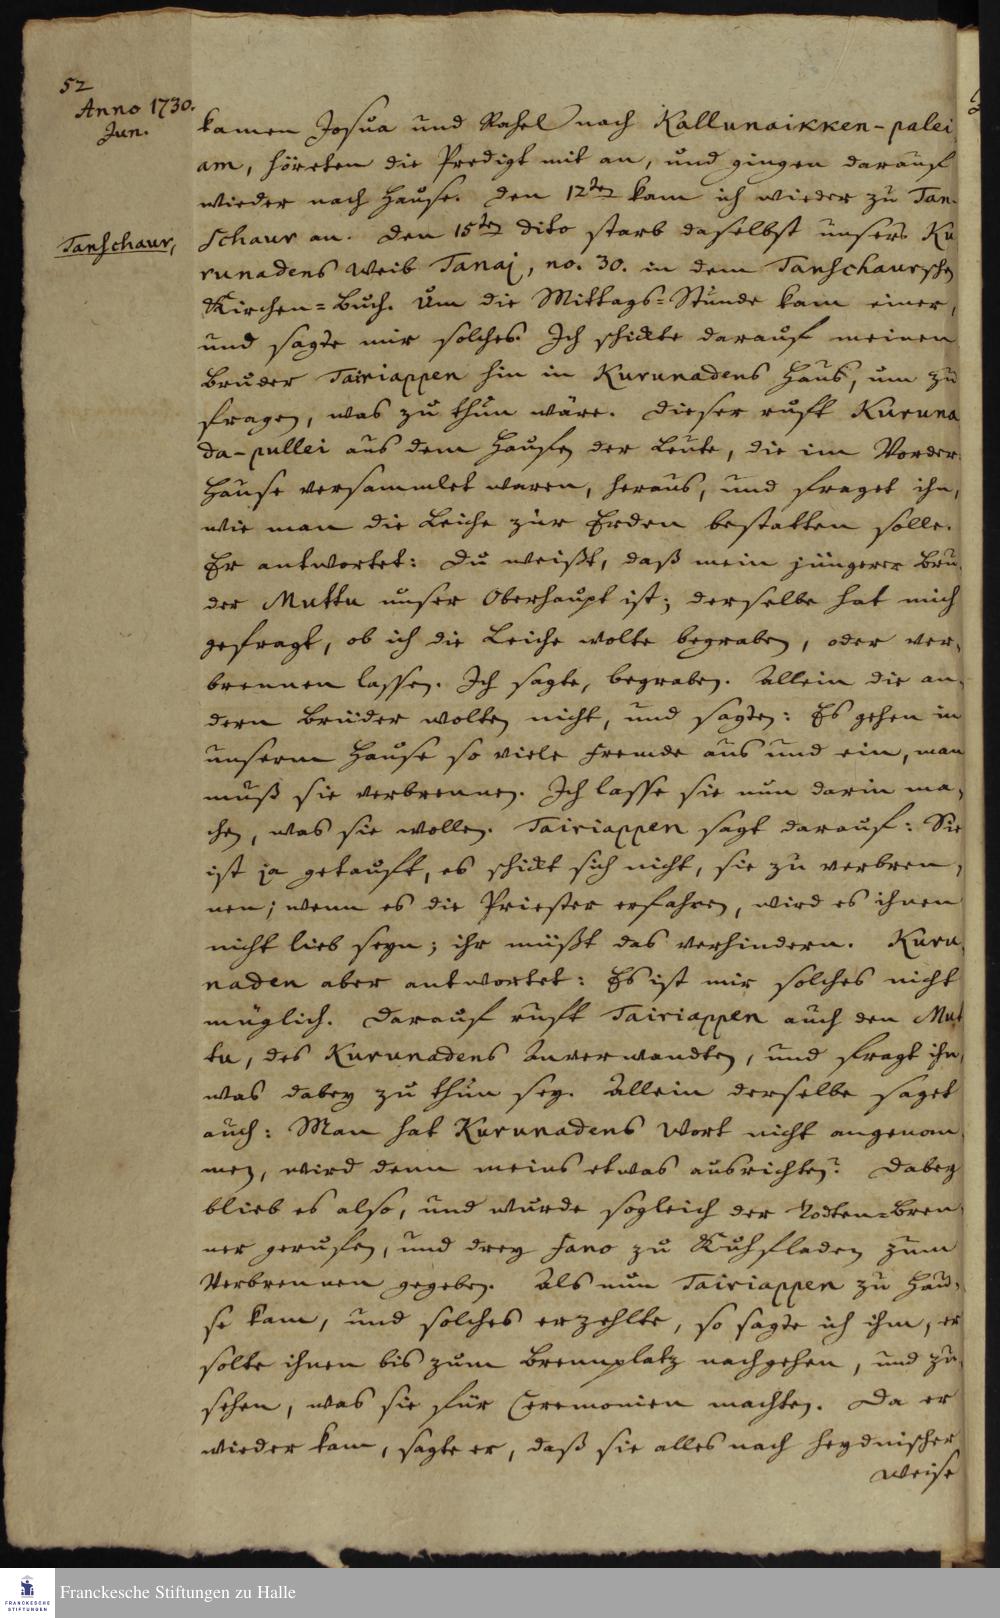 52
Anno 1730.
Jun.
kamen Josua und Rahel nach Kallunaikken-palei
am, höreten die Predigt mit an, und gingen darauf
wieder nach Hause. Den 12ten kam ich wieder zu Tan-
Tanschaur,
schaur an. Den 15ten dito starb daselbst unsers Ku
runadens Weib Tanaj, no. 30. in dem Tanschaurschen
Kirchen=Buch. Um die Mittags=Stunde kam einer,
und sagte mir solches. Ich schickte darauf meinen
Bruder Tairiappen hin in Kurunadens Haus, um zu
fragen, was zu thun wäre. Dieser ruft Kuruna
da-pullei aus dem Haufen der Leute, die im Vorder
Hause versammlet waren, heraus, und fraget ihn,
wie man die Leiche zur Erden bestatten solle.
Er antwortet: Du weißt, daß mein jüngerer Bru,
der Muttu unser Oberhaupt ist; derselbe hat mich
gefragt, ob ich die Leiche wolte begraben, oder ver,
brennen lassen. Ich sagte, begraben. Allein die an,
dern Brüder wolten nicht, und sagten: Es gehen in
unserm Hause so viele Fremde aus und ein, man
muß sie verbrennen. Ich lasse sie nun darin ma,
chen, was sie wollen. Tairiappen sagt darauf: Sie
ist ja getauft, es schickt sich nicht, sie zu verbren,
nen; wenn es die Priester erfahren, wird es ihnen
nicht lieb seyn; ihr müßt das verhindern. Kuru,
naden aber antwortet: Es ist mir solches nicht
müglich. Darauf ruft Tairiappen auch den Mut
tu, des Kurunadens Anverwandten, und fragt ihn,
was dabey zu thun sey. Allein derselbe saget
auch: Man hat Kurunadens Wort nicht angenom
men, wird denn meins etwas ausrichten? Dabey
blieb es also, und wurde sogleich der Todten=Bren
ner gerufen, und drey Fano zu Kuhfladen zum
Verbrennen gegeben. Als nun Tairiappen zu Hau,
se kam, und solches erzehlte, so sagte ich ihm, er
solte ihnen bis zum Brennplatz nachgehen, und zu,
sehen, was sie für Ceremonien machten. Da er
wieder kam, sagte er, daß sie alles nach heydnischer
Weise
FRANCKESCHE
STIFTUNGEN
Franckesche Stiftungen zu Halle